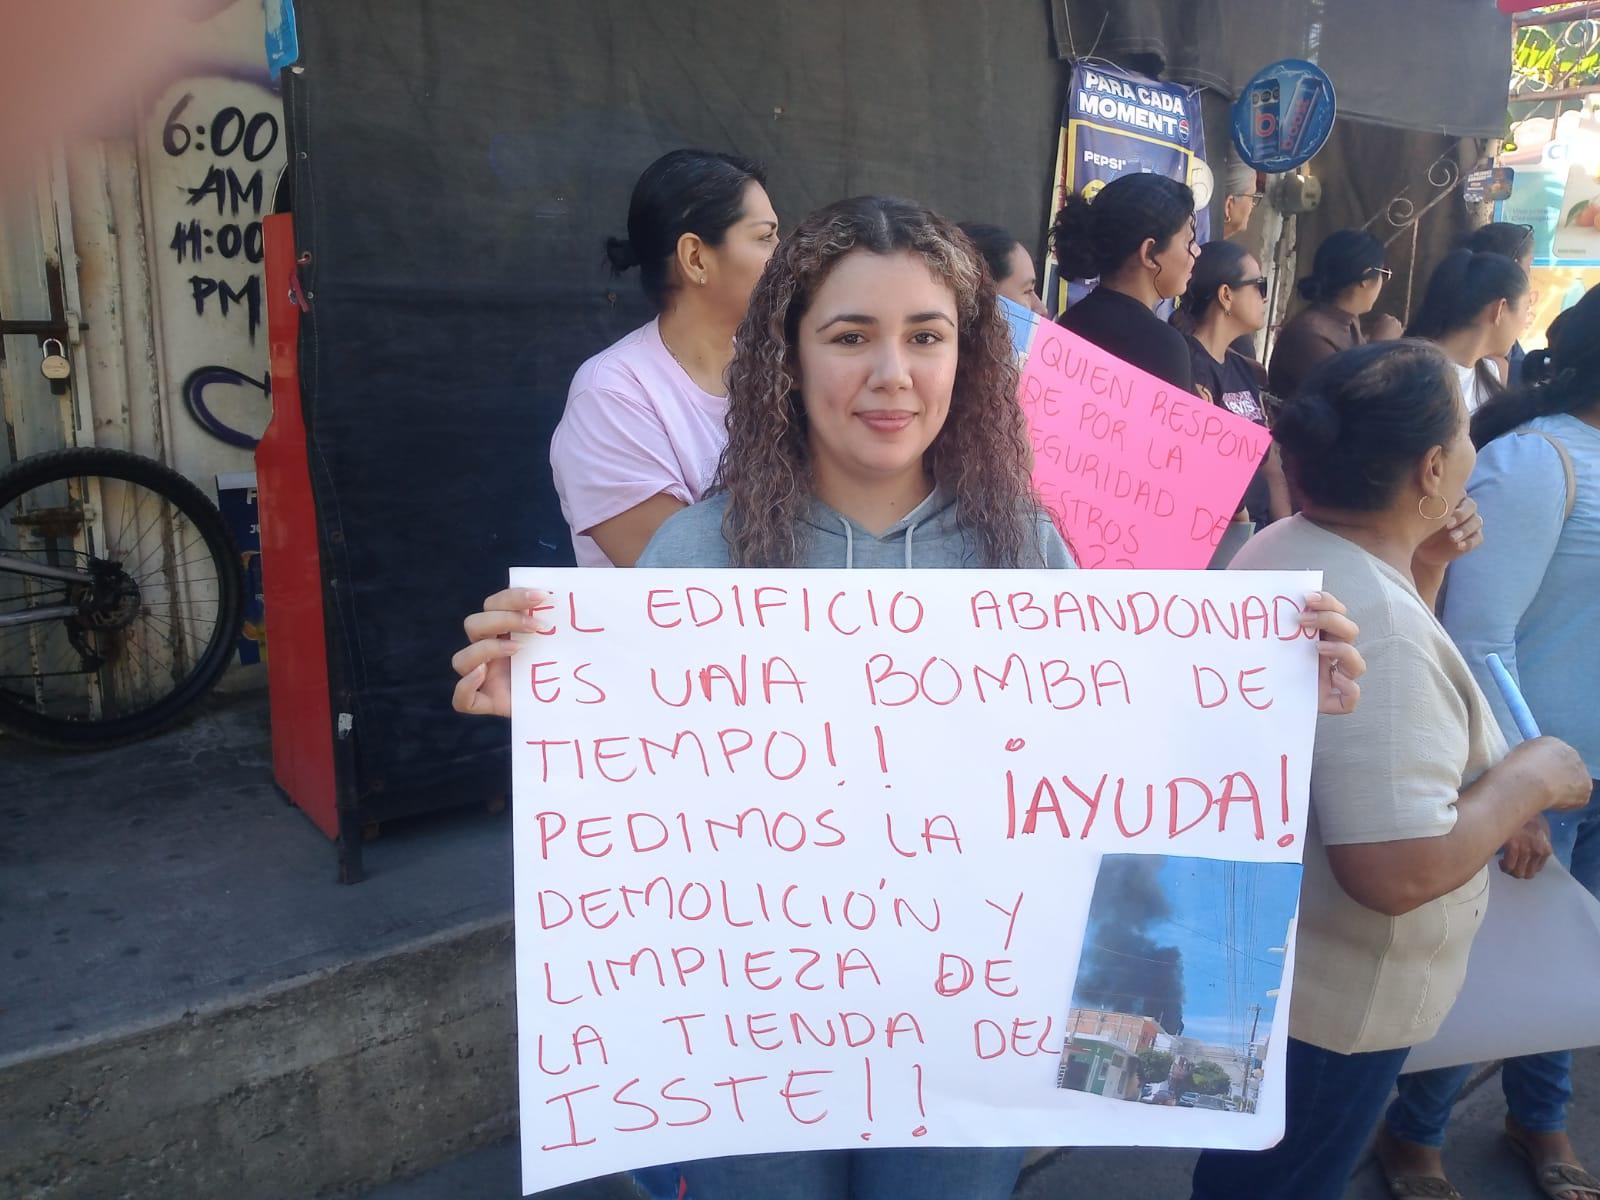 6:00
AM
11:00
PM
PARA CADA
MOMENTO
PEPSI
QUIEN RESPON-
DE POR LA
EGURIDAD DE
ESTROS
??
EL EDIFICIO ABANDONADO
ES UNA BOMBA DE
TIEMPO!!
¡AYUDA!
PEDIMOS LA
DEMOLICIÓN Y
LIMPIEZA DE
LA TIENDA DEL
ISSTE!!